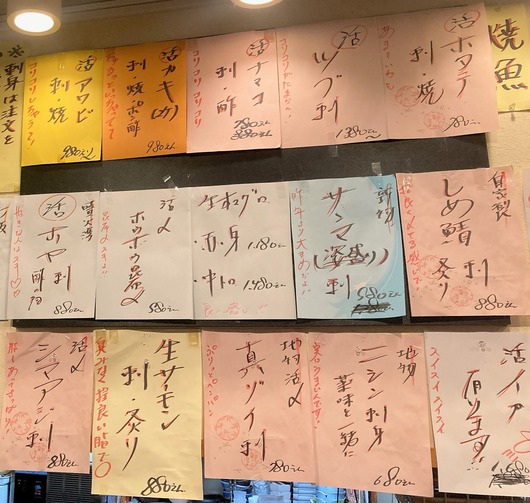 焼魚
活
ホタテ
刺・焼
780えん
活
ツブ刺
コリコリがたまらない!
1380えん
活
ナマコ
刺・酢
コリコリコリコリ
980えん
880えん
活カキ(カ)
刺・焼・ポン酢
980えん
活
アワビ
刺・焼
980えん
※刺身は注文を
自家製
しめ鯖
刺
炙り
880えん
新物
サンマ(姿盛り)刺
580えん
生本マグロ
・赤身 1.180えん
・中トロ 1.480えん
活〆
ホウボウ昆布〆
580えん
活
ホヤ刺
酢の物
好きな人はスキ♡♡
880えん
活イカ
有ります!!
スイスイスイスイ
地物
ニシン刺身
薬味と一緒に
680えん
地物活〆
真ゾイ刺
780えん
生サーモン
刺・炙り
880えん
活〆
シマアジ刺
880えん